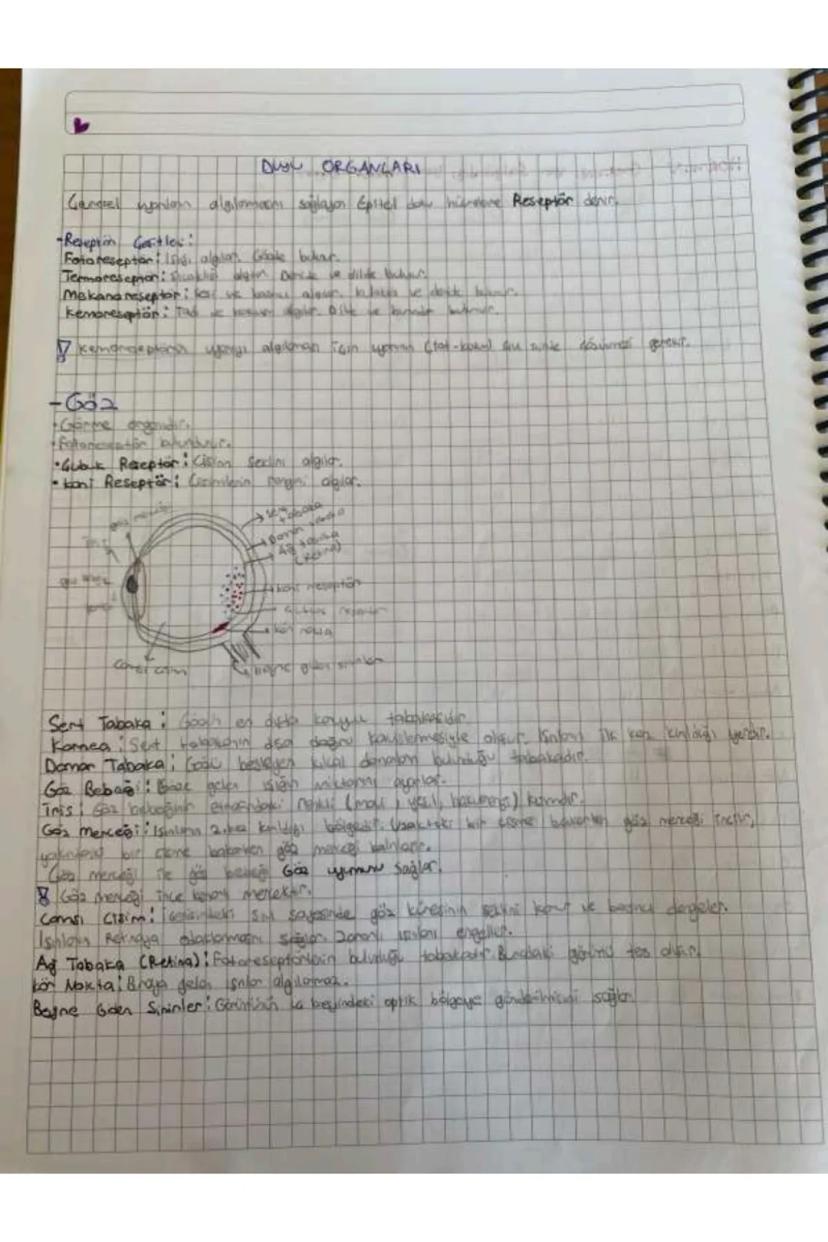 DUYU ORGANLARI
Çevresel uyarıların algılanmasını sağlayan Epitel doku hücrelerine Reseptör denir.
-Reseptör Çeşitleri:
Fotoreseptör: Işığı algılar. Gözde bulunur.
Termoreseptör: Sıcaklığı algılar. Deride ve dilde bulunur.
Mekanoreseptör: ve basıncı algılar. kulakta ve deride bulunur.
Kemoreseptör: Tad ve kokuyu algılar. Dilde ve burunda bulunur.
Kemoreseptörün uyarıyı algılaması için uyaranın (tat-koku) sıvı içinde gerekir.
-Göz
•Görme organıdır.
•Fotoreseptör bulundurur.
•Çubuk Reseptör: Cismin şeklini algılar.
•koni Reseptör: Cisimlerin rengini algılar.
göz merceği
sert tabaka
Damar tabaka
Ağ tabaka (Retina)
İris
göz bebeği
koni reseptör
Çubuk reseptör
kör nokta
Camsı cisim
Beyne giden sinirler
Sert Tabaka: Gözün en dışta koruyucu tabakasıdır.
Kornea: Sert tabakanın dışa doğru oluşur. Işınların ilk kez kırıldığı yerdir.
Damar Tabaka: Gözü besleyen kılcal damarların bulunduğu tabakadır.
Göz Bebeği: Göze gelen ışığın miktarını ayarlar.
İris: Göz bebeğinin etrafındaki renkli (mavi, yeşil, kahverengi) kısımdır.
Göz merceği: Işınların 2.kez kırıldığı bölgedir. Uzaktaki bir cisme bakarken göz merceği incelir,
yakındaki bir cisme bakarken göz merceği kalınlaşır.
Göz merceği ile göz bebeği Göz uyumunu sağlar.
Göz merceği ince kenarlı mercektir.
Camsı Cisim: İçerisindeki sıvı sayesinde göz küresinin şeklini korur ve basıncı dengeler.
Işınların Retinaya sağlar. Zararlı ışınları engeller.
Ağ Tabaka (Retina): Fotoreseptörlerin bulunduğu tabakadır. Buradaki görüntü ters olur.
kör Nokta: Buraya gelen ışınlar algılanmaz.
Beyne Giden Sinirler: Görüntünün beyindeki optik bölgeye gönderilmesini sağlar.